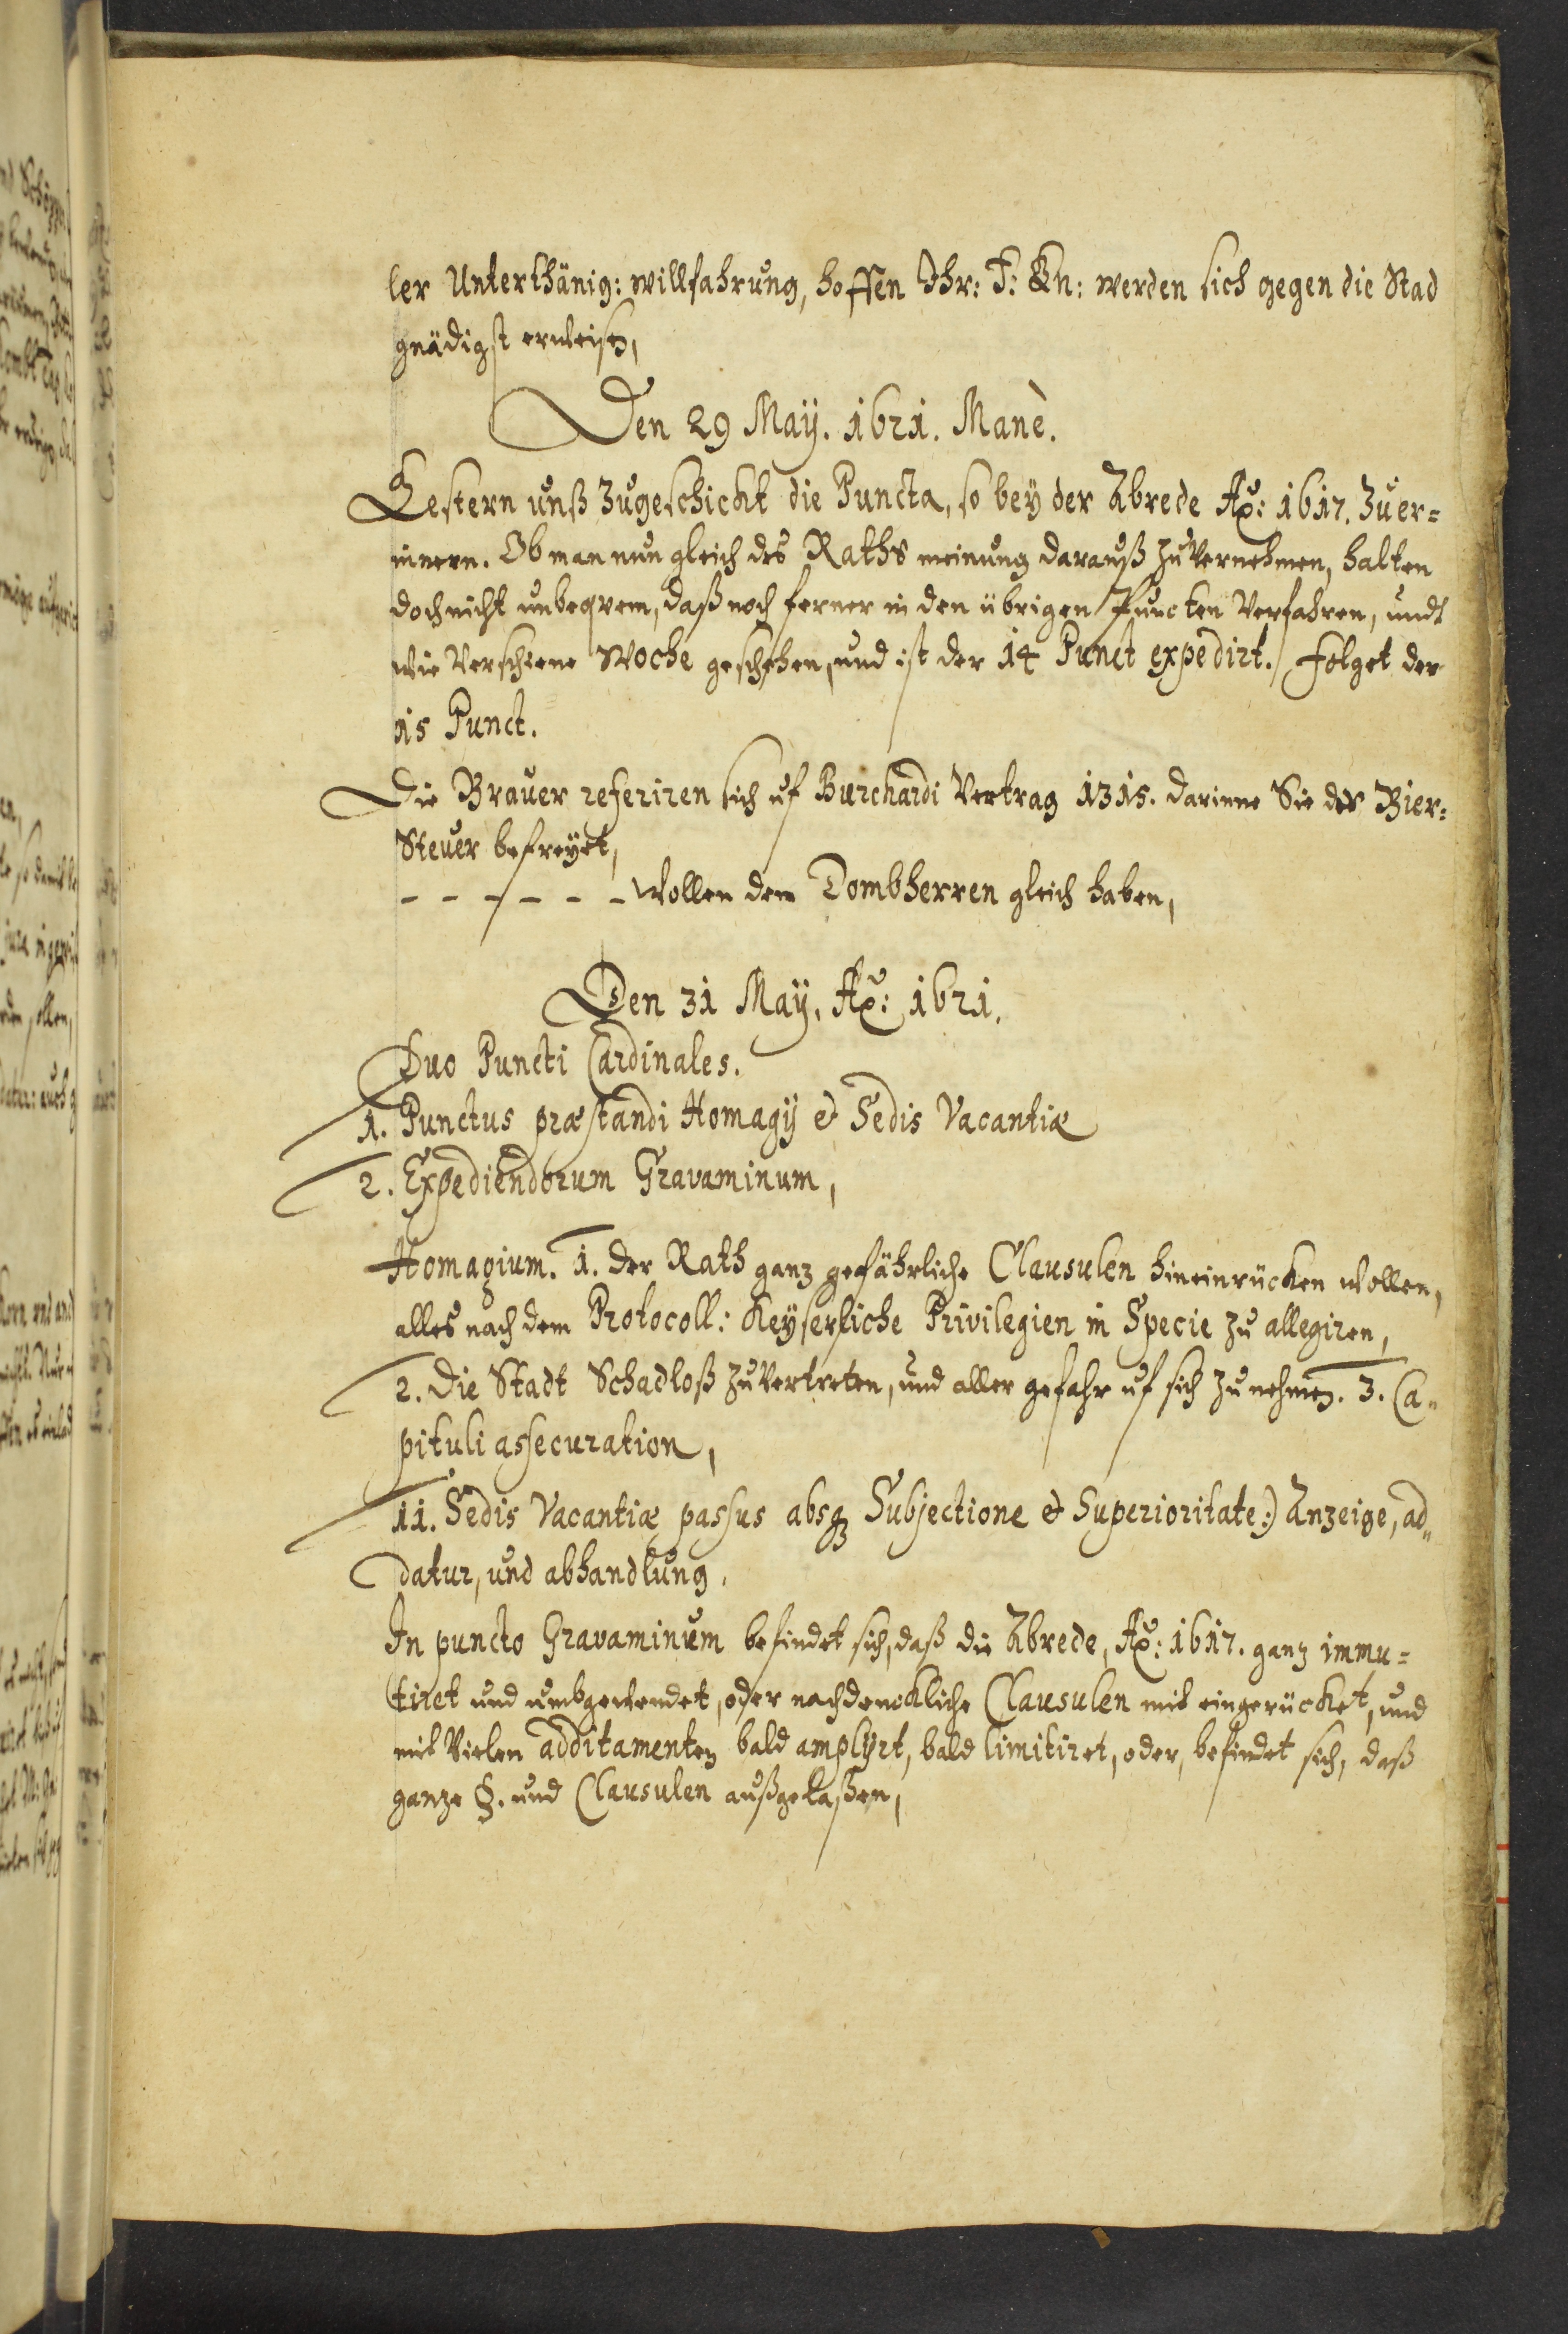 ler Unterthänig: willfahrung, hoffen Ihr: F: Gn: werden sich gegen die Stad
gnädigst erweisen,
Den 29 Maÿ. 1621. Manè.
Gestern unß zugeschickt die Puncta, so beÿ der Abrede Ao: 1617. zu er=
innern. Ob man nun gleich des Raths meinung darauß zu vernehmen, halten
doch nicht unbeqvem, daß noch ferner in den übrigen Puncten verfahren, undt
wie verschiene Woche geschehen, und ist der 14 Punct expedirt. Folget der
15 Punct.
Die Brauer referiren sich uf Burchardi Vertrag 1315. darinne Sie der Bier=
Steuer befreÿet,
- - - - - - wollen dem Dombherren gleich haben,
Den 31 Maÿ. Ao: 1621.
Duo Puncti Cardinales.
1. Punctus præstandi Homagÿ & Sedis Vacantiæ
2. Expediendorum Gravaminum,
Homagium. 1. der Rath ganz gefährliche Clausulen hineinrücken wollen,
alles nach dem Protocoll: Keÿserliche Privilegien in Specie zu allegiren,
2. die Stadt Schadloß zu vertreten, und aller gefahr uf sich zu nehmen. 3. Ca=
pituli assecuration,
11. Sedis Vacantiæ passus absq Subjectione & Superioritate:) Anzeige, ad=
datur, und abhandlung.
In puncto Gravaminum befindet sich, daß die Abrede, Ao: 1617. ganz immu=
tiret und umbgewendet, oder nachdenckliche Clausulen mit eingerücket, und
mit vielen additamenten bald amplÿrt, bald limitiret, oder, befindet sich, daß
ganze §. und Clausulen außgelaßen,